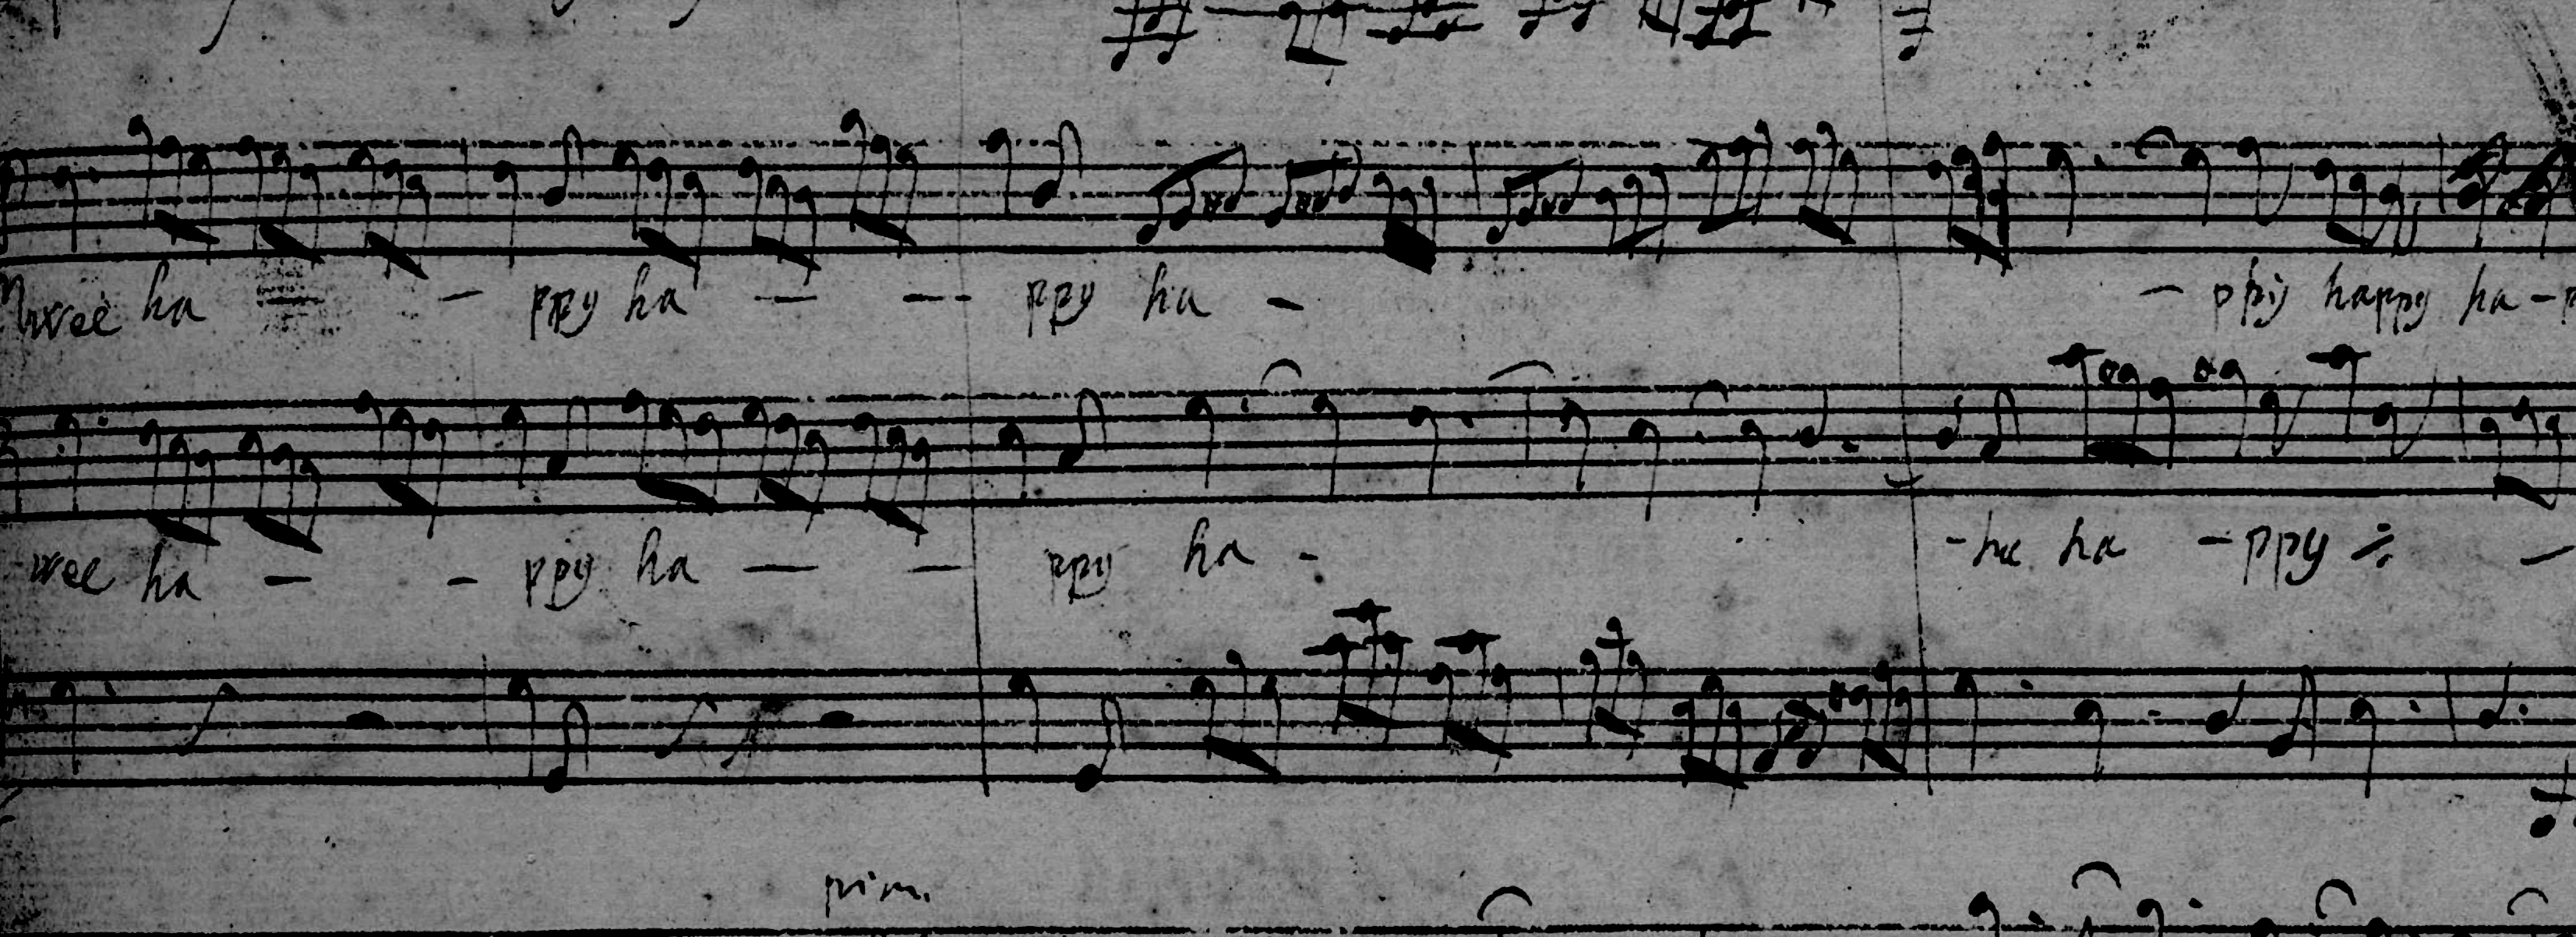 wee ha - - ppy ha - - ppy ha - - ppy happy ha - p
wee ha - - ppy ha - - ppy ha - - ha - ppy -
pim.